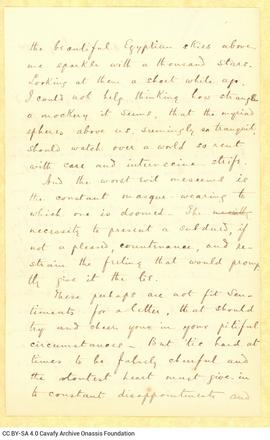 the beautiful Egyptian skies above
me sparkle with a thousand stars.
Looking at them a short while ago,
I could not help thinking how strange
a mockery it seems, that the myriad
spheres above us, seemingly so tranquil,
should watch over a world so rent
with care and internecine strife.
And the worst evil meseems is
the constant masque-wearing to
which one is doomed. The
necessity to present a subdued, if
not a pleased, countenance, and re-
strain the feeling that would promp
tly give it the lie.
These perhaps are not fit sen-
timents for a letter, that should
try and cheer you in your pitiful
circumstances - But 'tis hard at
times to be falsely cheerful and
the stoutest heart must give in
to constant disappointments and
CC BY-SA 4.0 Cavafy Archive Onassis Foundation